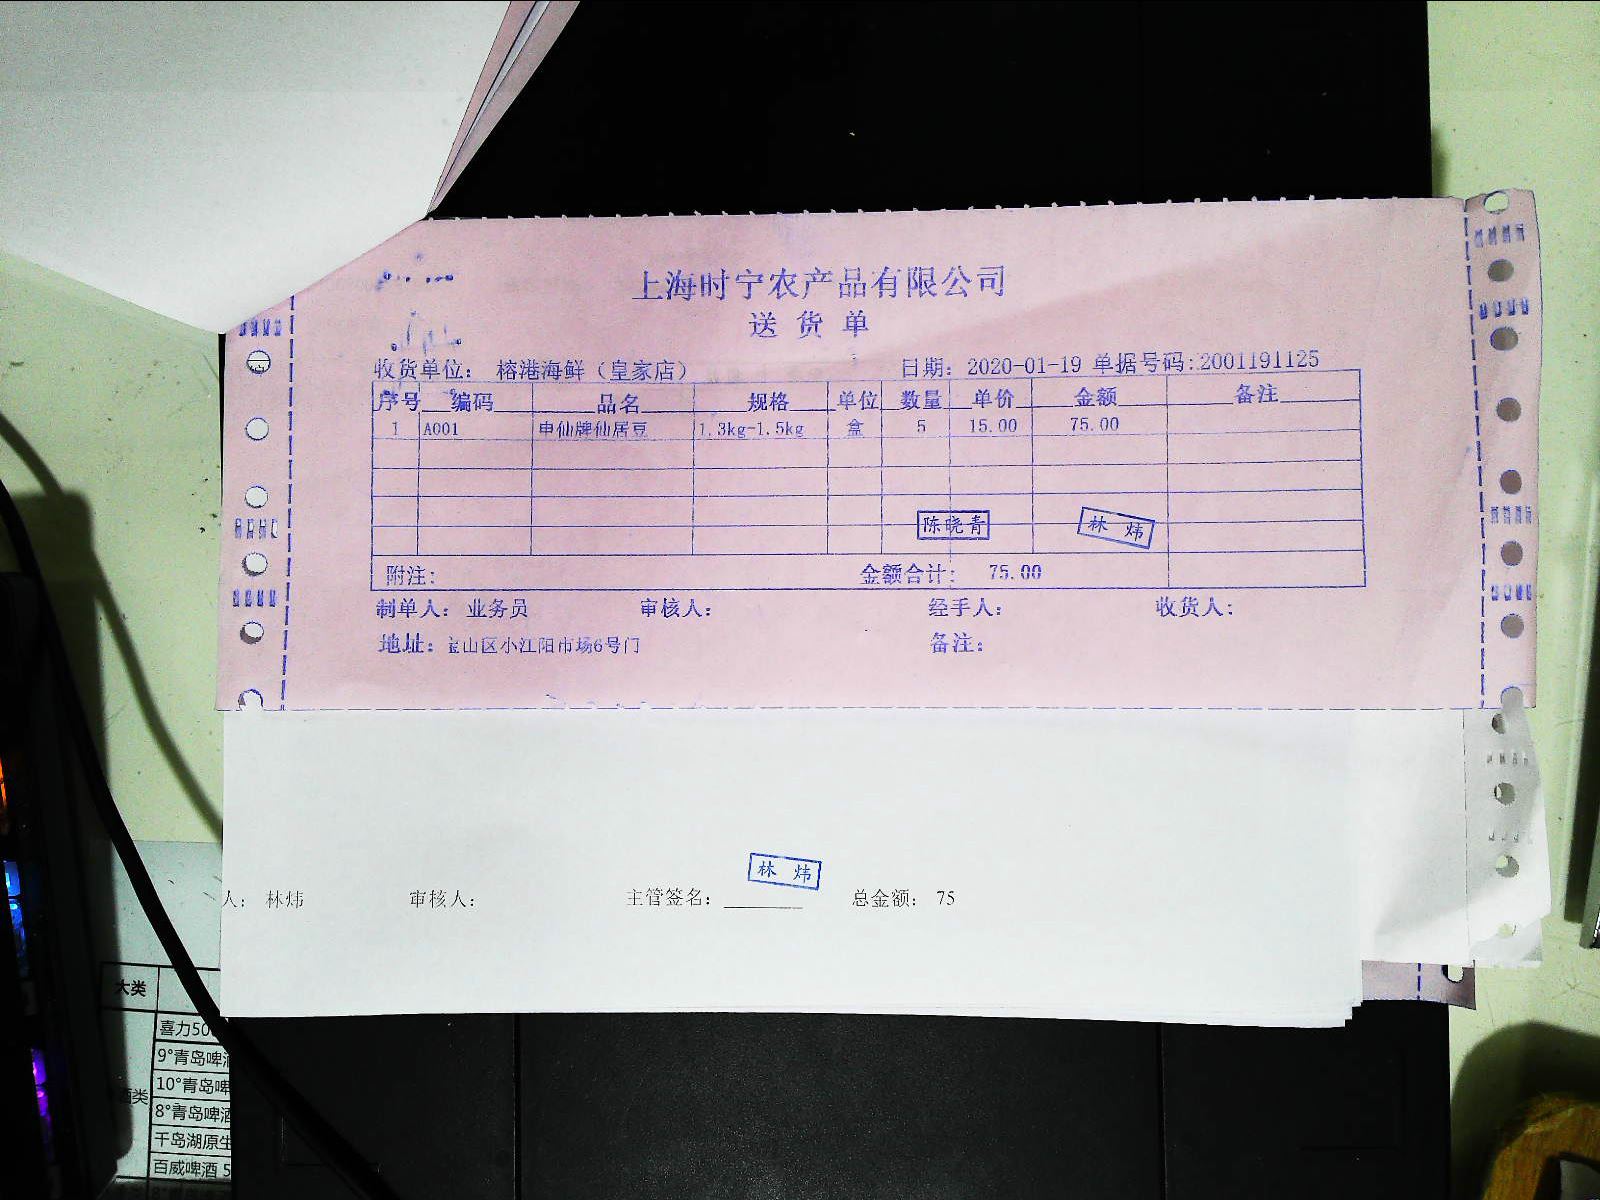 上海时宁农产品有限公司
送货单
收货单位： 榕港海鲜（皇家店） 日期： 2020-01-19 单据号码:2001191125
序号 编码 品名 规格 单位 数量 单价 金额 备注
1 A001 申仙牌仙居豆 1.3kg-1.5kg 盒 5 15.00 75.00
陈晓青 林炜
附注: 金额合计: 75.00
制单人: 业务员 审核人: 经手人: 收货人:
地址: 宝山区小江阳市场6号门 备注:
林炜
人: 林炜 审核人: 主管签名: 总金额: 75
大类
喜力500
9°青岛啤酒
10°青岛啤
酒类
8°青岛啤酒
千岛湖原生
百威啤酒 5